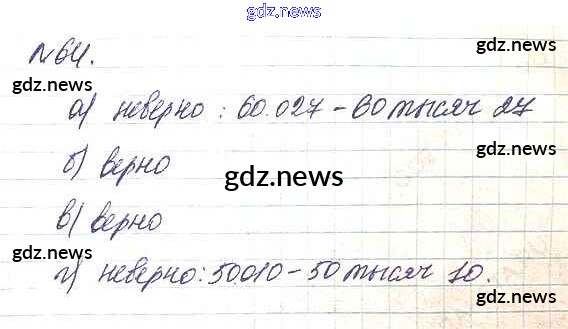 gdz.news
№64.
gdz.news
gdz.news
а) неверно : 60.027 - 60 тысяч 27
б) верно
gdz.news
gdz.news
в) верно
gdz.news
gdz.news
г) неверно: 50.010 - 50 тысяч 10.
gdz.news